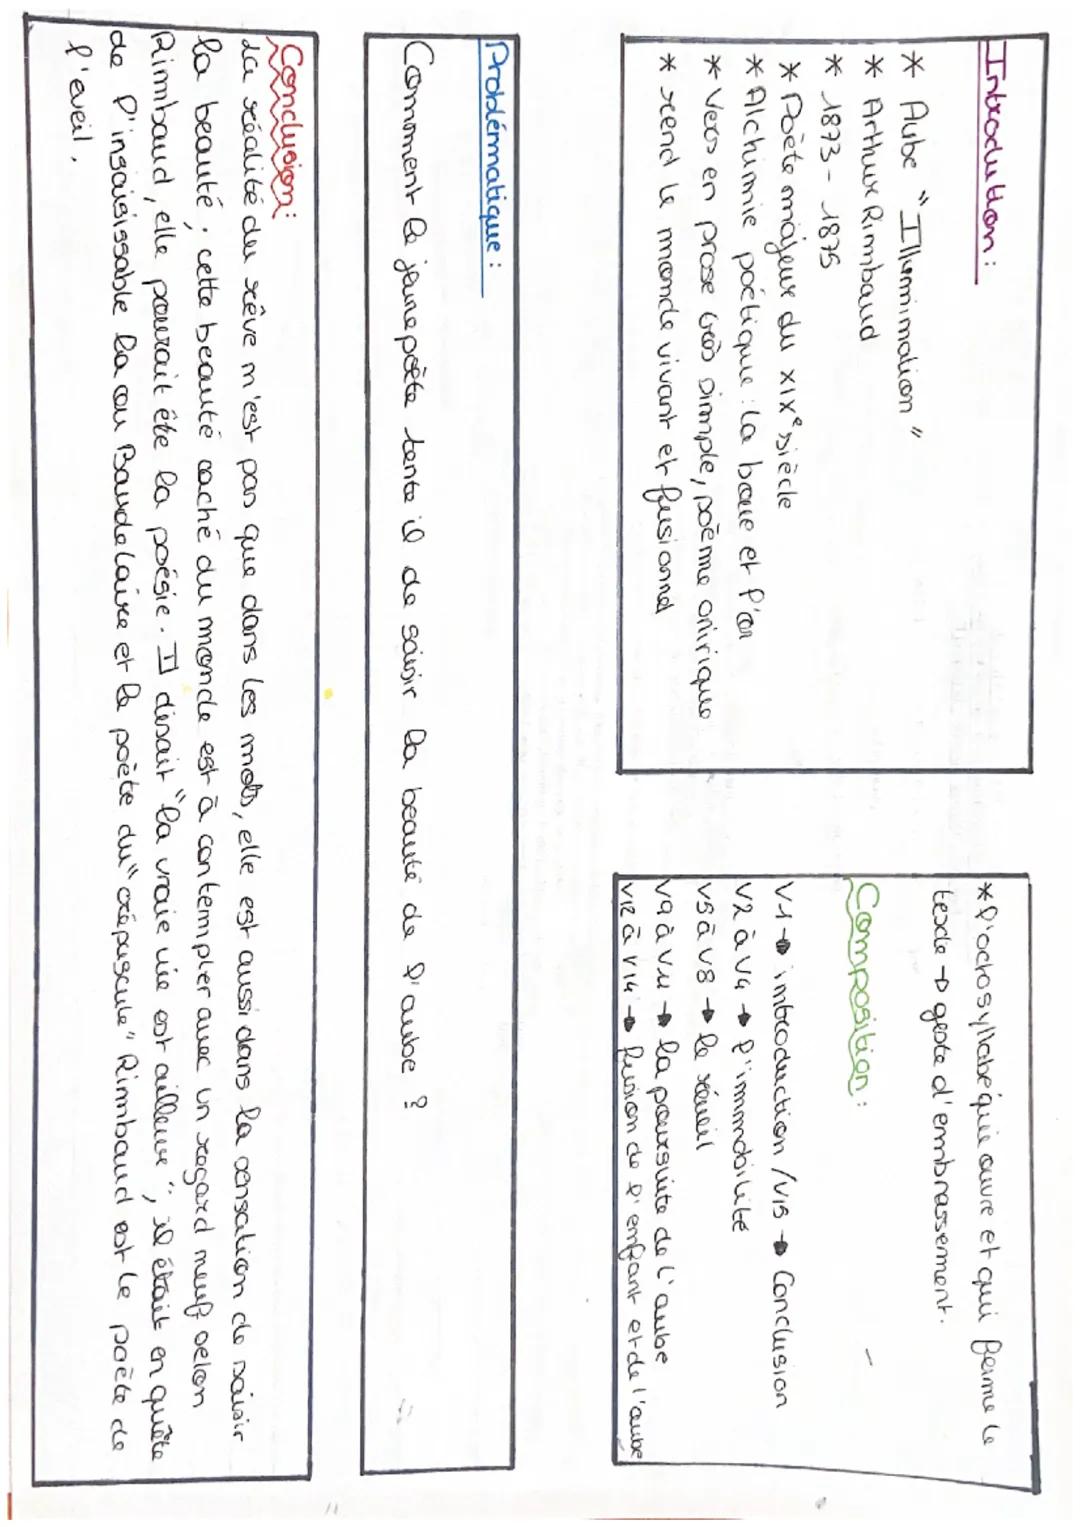 Introduction :
* Aube "Illumination"
* Arthur Rimbaud
* 1873 - 1875
* Poète majeur du XIXe siècle
* Alchimie poétique : la boue et l'or
* Vers en prose très simple, poème onirique
* rend le monde vivant et fusionnel
* l'octosyllabe qui ouvre et qui ferme le
texte → geste d'embrassement.
Composition :
V1 → introduction / V15 → Conclusion
V2 à V4 → l'immobilité
V5 à V8 → le réveil
V9 à V11 → la poursuite de l'aube
V12 à V14 → fusion de l'enfant et de l'aube
Problématique :
Comment le jeune poète tente il de saisir la beauté de l'aube ?
Conclusion :
La réalité du rêve n'est pas que dans les mots, elle est aussi dans la sensation de saisir
la beauté ; cette beauté caché du monde est à contempler avec un regard neuf selon
Rimbaud, elle pourait être la poésie. Il disait "la vraie vie est ailleure", il était en quête
de l'insaisissable la ou Baudelaire et le poète du "crépuscule" Rimbaud est le poète de
l'éveil.